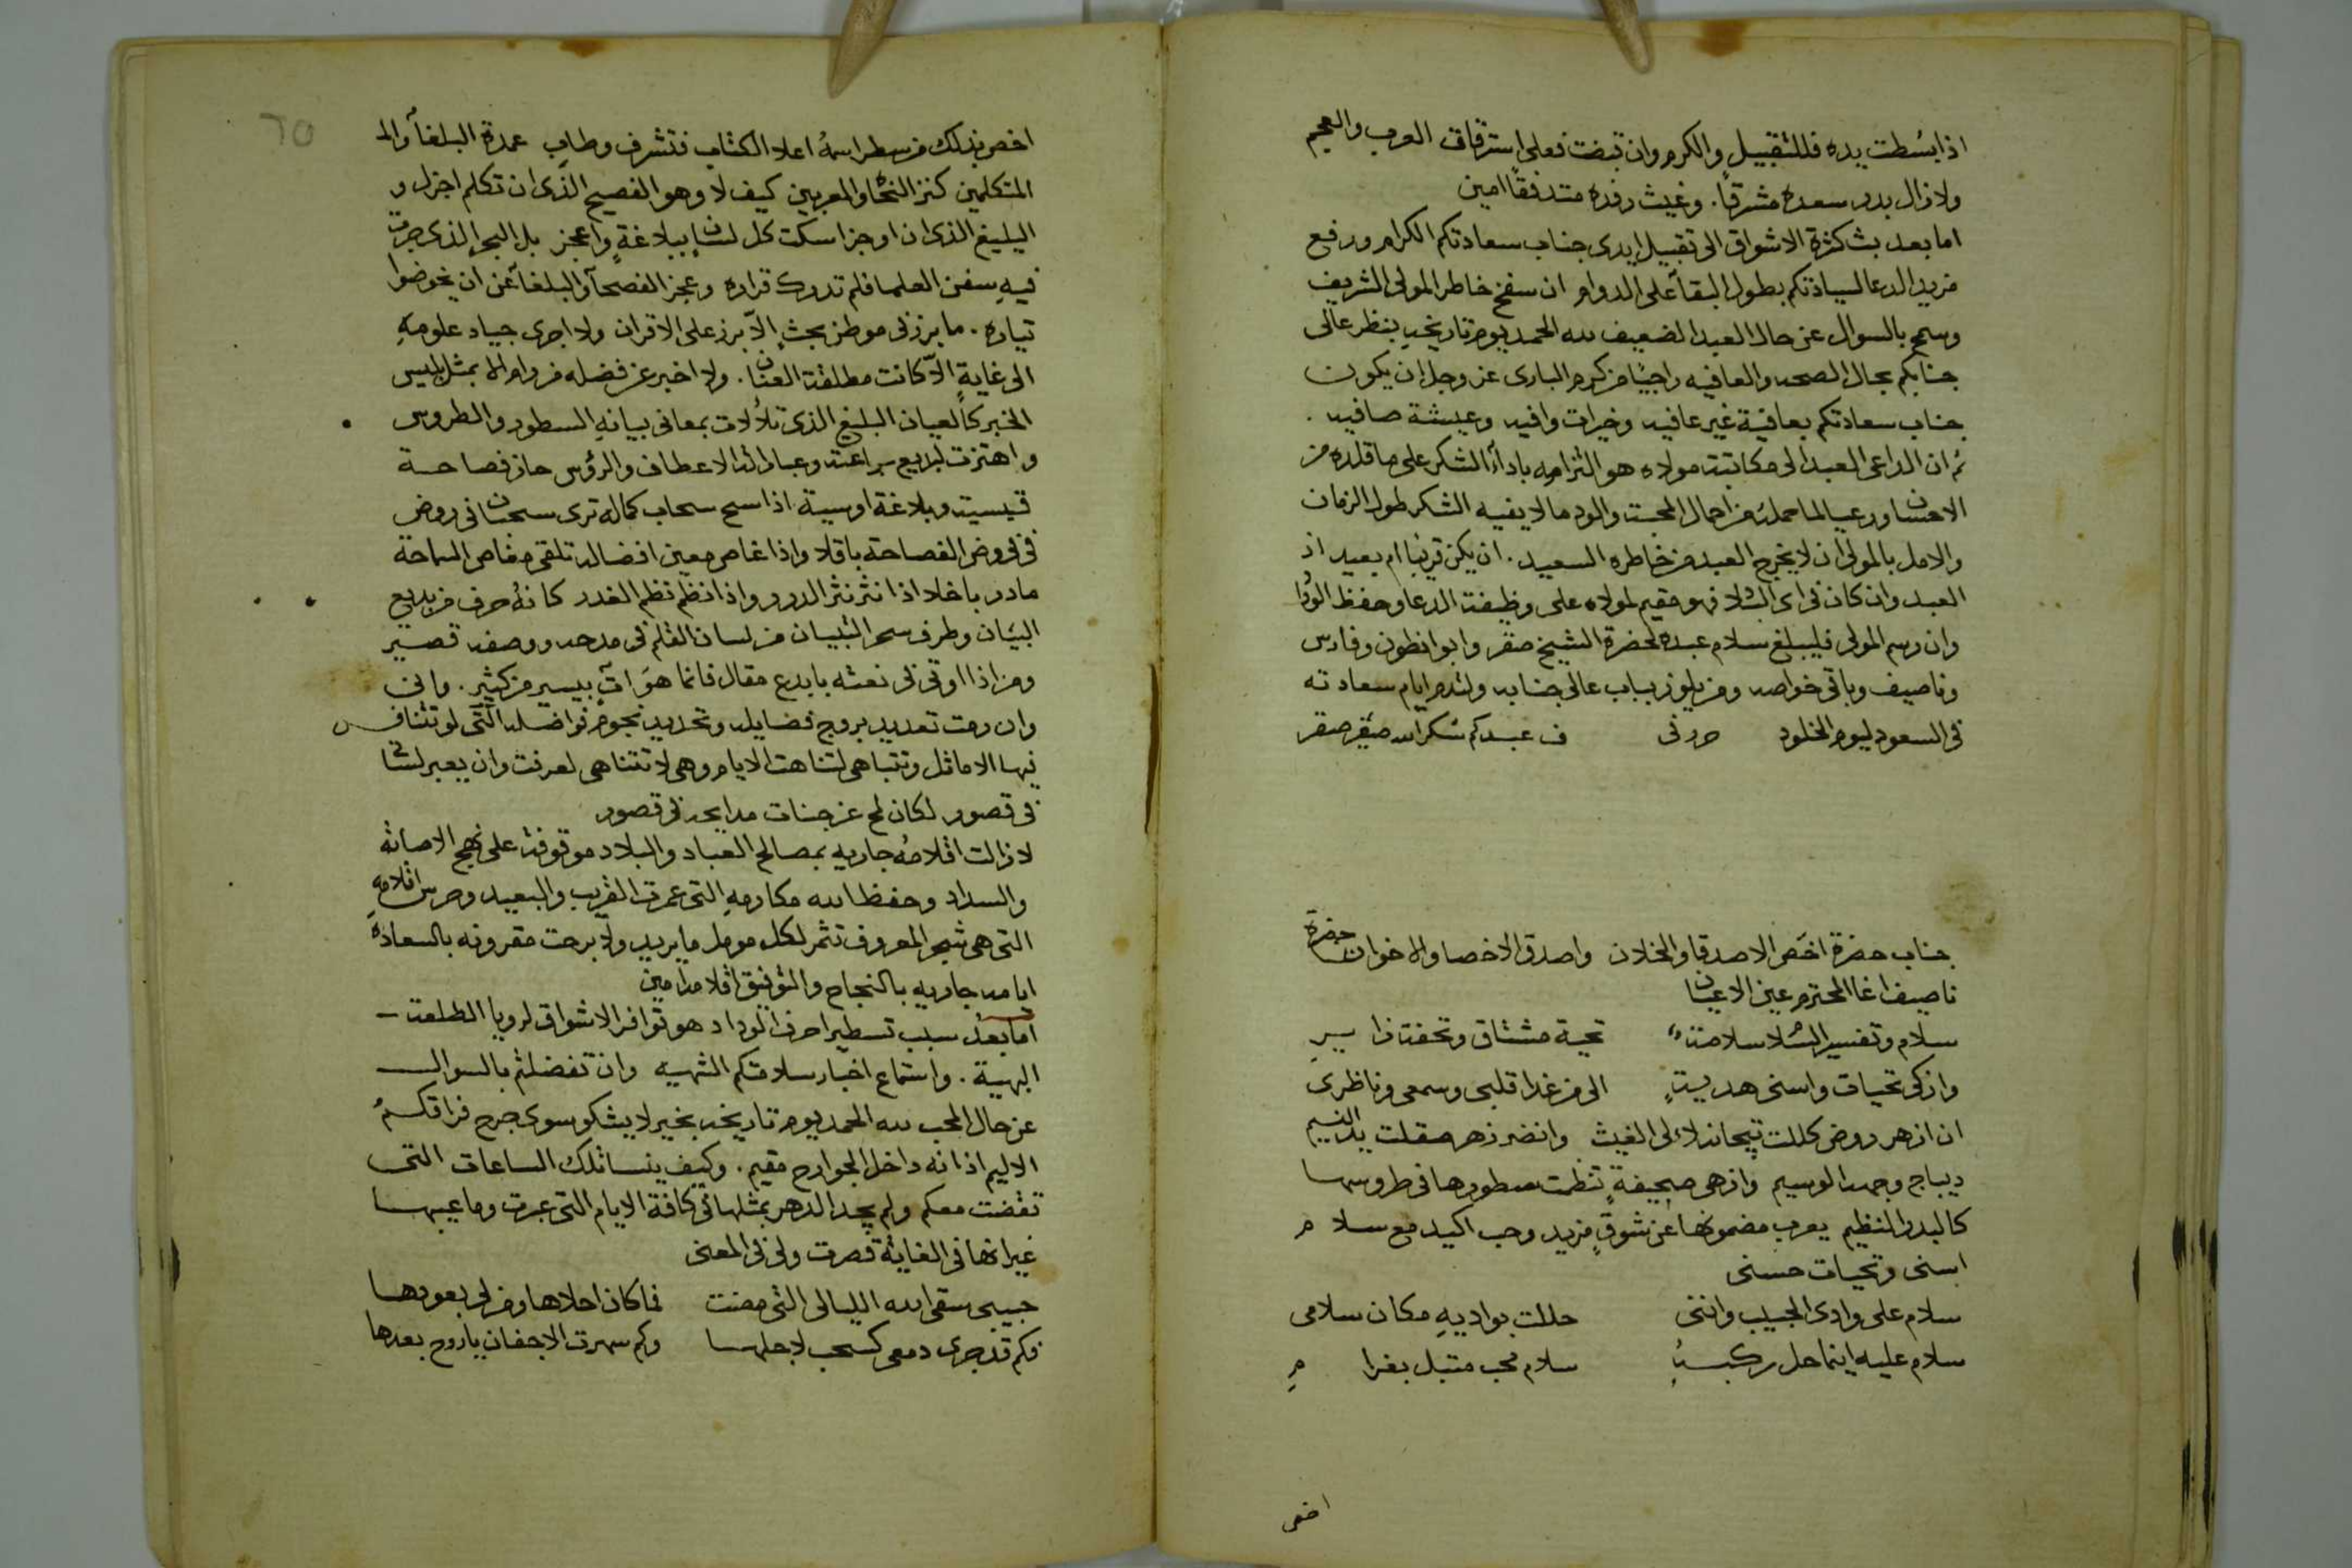 اذا بسطت يده فللتقبيل والكرم وان قبضت فعلى استرقاق العرب والعجم
ولا زال بدر سعده مشرقاً. وغيث رفده متدفقاً امين
اما بعد بث كثرة الاشواق الى تقبيل ايدى جناب سعادتكم الكرام ورفع
مزيد الدعا لسيادتكم بطول البقآ على الدوام ان سنح خاطر المولى الشريف
وسمح بالسوال عن حال العبد الضعيف لله الحمد يوم تاريخه بنظر عالى
جنابكم بحال الصحه والعافيه راجيًا من كرم البارى عز وجل ان يكون
جناب سعادتكم بعافية غير عافيه وخيرات وافيه وعيشة صافيه .
ثم ان الداعى العبد الى مكاتبة مولاه هو التزامه بادآء الشكر على ما قلده من
الاحسان ورعيا لما حمله من احمال المحبة والود ما لا يفيه الشكر طول الزمان
والامل بالمولى ان لا يخرج العبد من خاطره السعيد . ان يكن قريبا ام بعيد اذ
العبد وان كان فى اى البلاد فهو مقيم لمولاه على وظيفة الدعا وحفظ الوداد
وان رسم المولى فليبلغ سلام عبده لحضرة الشيخ صقر وابو انطون وفارس
وناصيف وباقى خواصه ومن يلوذ بباب عالى جنابه ولتدم ايام سعادته
فى السعود ليوم الخلود حرر فى ف عبدكم شكرالله صقر صقر
جناب حضرة اخص الاصدقا والخلان واصدق الاخصا والاخوان حضرة
ناصيف اغا المحترم عين الاعيان
سلام وتفسير السلا سلامة تحية مشتاق وتحفة زا يـرِ
وازكى تحيات واسنى هدية الى من غدا قلبى وسمعى وناظرى
ان ازهر روض كللت تيجانه لاءلى الغيث وانضر زهر صقلت يد النسيم
ديباج وجهه الوسيم وازهى صحيفةٍ نظمت سطورها فى طروسها
كالبدر النظيم يعرب مضمونها عن شوقٍ مزيد وحب اكيد مع سلا م
اسنى وتحيات حسنى
سلام على وادى الحبيب واننى حللت بواديهِ مكان سلامى
سلام عليه اينما حل ركبهُ سلام محب مقبل بغرا مِ
اخص
اخص بذلك من سطر اسمهُ اعلا الكتاب فتشرف وطاب عمدة البلغآ والـ
المتكلمين كنز النحاه والمعربين كيف لا وهو الفصيح الذى ان تكلم اجزل و
البليغ الذى ان اوجز اسكت كل لسان ببلاغةٍ واعجز بل البحر الذى جرت
فيهِ سفن العلما فلم تدرك قراره وعجز الفصحآ والبلغآ عن ان يخوضوا
تياره . ما برز فى موطن بحثٍ الاّ برز على الاقران ولا اجرى جياد علومهِ
الى غايةٍ الاّ كانت مطلقة العنان . ولا اخبر عن فضله من رواه الا بمثل ليس
الخبر كالعيان البليغ الذى تلألأت بمعانى بيانهِ السطور والطروس
واهتزت لبديع براعته وعباراته الاعطاف والرؤس حاز فصاحة
قيسيه وبلاغة اوسية . اذا سح سحاب كماله ترى سحبان فى روض
فى فروض الفصاحة باقلا واذا غاص معين افضاله تلقى مغاص السماحة
مادر باخلا اذا نثر نثر الدرر واذا نظم نظم الغدر كانهُ حرف من بديع
البيان وطرف سحر التبيان من لسان القلم فى مدحه ووصفه قصير
ومن اذا اوتى فى نعته بابدع مقال فانما هوَ اتٍ بيسير من كثير . وانى
وان رمت تعديد بروج فضايله وتحديد نجوم فواضله الّتى لو تتنافس
فيها الاماثل وتتباهى لتناهت الايام وهى لا تتناهى لعرفت وان يعبر لسانى
فى قصور لكان لمح عن جنات مدايحه فى قصور
لا زالت اقلامهُ جاريه بمصالح العباد والبلاد موقوفة على نهج الاصابه
والسداد وحفظ الله مكارمهِ التى عمرت القريب والبعيد وحرس اقلامهِ
التى هى شجر المعروف تثمر لكل مومل ما يريد ولا برحت مقرونه بالسعاده
ايامه جاريه بالنجاح والتوفيق اقلامه امين
اما بعدُ سبب تسطير احرف الوداد هو توافر الاشواق لرويا الطلعة
البهية . واستماع اخبار سلامتكم الشهيه وان تفضلتم بالسوال
عن حال المحب لله الحمد يوم تاريخه بخير لا يشكو سوى جرح فراقكمُ
الاليم اذ انه داخل الجوارح مقيم . وكيف ينسا تلك الساعات التى
تقضت معكم ولم يجد الدهر بمثلها فى كافة الايام التى عبرت وما عيبها
غير انها فى الغاية قصرت ولى فى المعنى
حبيبى سقى الله الليالى التى مضت فما كان احلاها ومن لى بعودها
فكم قد جرى دمعى كسحب لاجلها وكم سهرت الاجفان ياروح بعدها